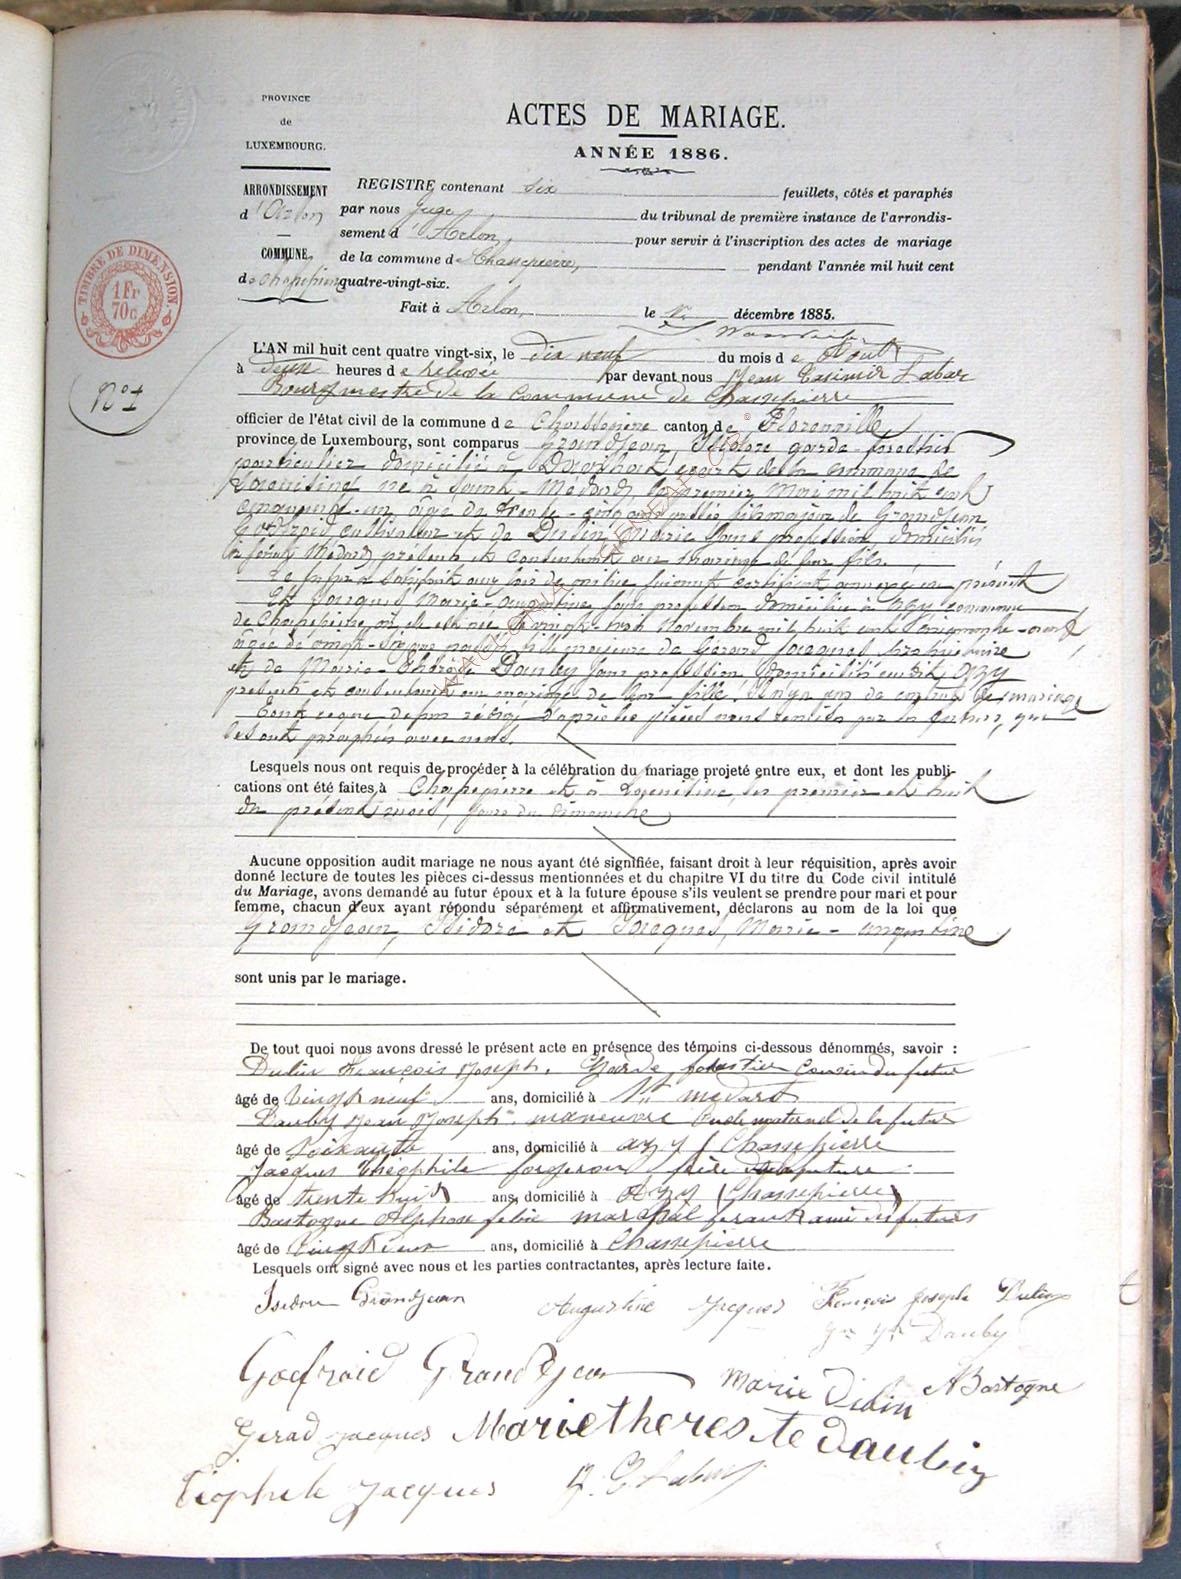 PROVINCE
de
LUXEMBOURG.
ARRONDISSEMENT
d'Arlon
COMMUNE
de Chassepierre
TIMBRE DE DIMENSION.
1 Fr
70 c
N° 1
ACTES DE MARIAGE.
ANNÉE 1886.
REGISTRE contenant six feuillets, côtés et paraphés
par nous Juge du tribunal de première instance de l'arrondis-
sement d'Arlon, pour servir à l'inscription des actes de mariage
de la commune de Chassepierre, pendant l'année mil huit cent
quatre-vingt-six.
Fait à Arlon, le décembre 1885.
L'AN mil huit cent quatre vingt-six, le dix neuf du mois de Août
à deux heures de relevée par devant nous Jean Casimir Labar
Bourgmestre de la commune de Chassepierre
officier de l'état civil de la commune de Chassepierre canton de Florenville,
province de Luxembourg, sont comparus Grandjean, Isidore garde-forestier
particulier domicilié à écart de la commune de
né à Saint-Médard, le premier Mai mil huit cent
cinquante-un, âgé de trente-cinq ans passés fils majeur de Grandjean
Godfroid cultivateur et de Dulin, Marie sans profession, domiciliés
à Saint Médard présents et consentant au mariage de leur fils.
Le futur a satisfait aux lois de milice suivant certificat annexé au présent
Et Jacques Marie-Augustine sans profession domiciliée à Azy commune
de Chassepierre, où elle est née le vingt-trois Novembre mil huit cent cinquante-neuf
âgée de vingt-six ans passés fille majeure de Gérard Jacques
et de Marie-Thérèse Dauby sans profession domiciliés audit Azy
présents et consentant au mariage de leur fille. Il n'y a pas de contrat de mariage
Tout ce que dessus rédigé d'après les pièces nous remises par les parties, qui
les ont paraphés avec nous.
Lesquels nous ont requis de procéder à la célébration du mariage projeté entre eux, et dont les publi-
cations ont été faites à Chassepierre et à les premier et huit
du présent mois, jours de dimanche
Aucune opposition audit mariage ne nous ayant été signifiée, faisant droit à leur réquisition, après avoir
donné lecture de toutes les pièces ci-dessus mentionnées et du chapitre VI du titre du Code civil intitulé
du Mariage, avons demandé au futur époux et à la future épouse s'ils veulent se prendre pour mari et pour
femme, chacun d'eux ayant répondu séparément et affirmativement, déclarons au nom de la loi que
Grandjean, Isidore et Jacques, Marie-Augustine
sont unis par le mariage.
De tout quoi nous avons dressé le présent acte en présence des témoins ci-dessous dénommés, savoir :
Dulin François Joseph. Garde forestier Cousin du futur
âgé de Vingt neuf ans, domicilié à St médard
Dauby Jean Joseph manœuvre oncle maternel de la future
âgé de soixante ans, domicilié à azy (Chassepierre
Jacques théophile forgeron frère de la future
âgé de trente huit ans, domicilié à Azy (Chassepierre)
Bastogne Alphonse felix maréchal ferant ami des futurs
âgé de Vingt deux ans, domicilié à Chassepierre
Lesquels ont signé avec nous et les parties contractantes, après lecture faite.
Isidore Grandjean Augustine Jacques François Joseph Dulin
Jn Jh Dauby
Godfroid Grandjean Marie Dulin A Bastogne
Gerad Jacques Marie therese Dauby
Tiophile Jacques J. C. Labar